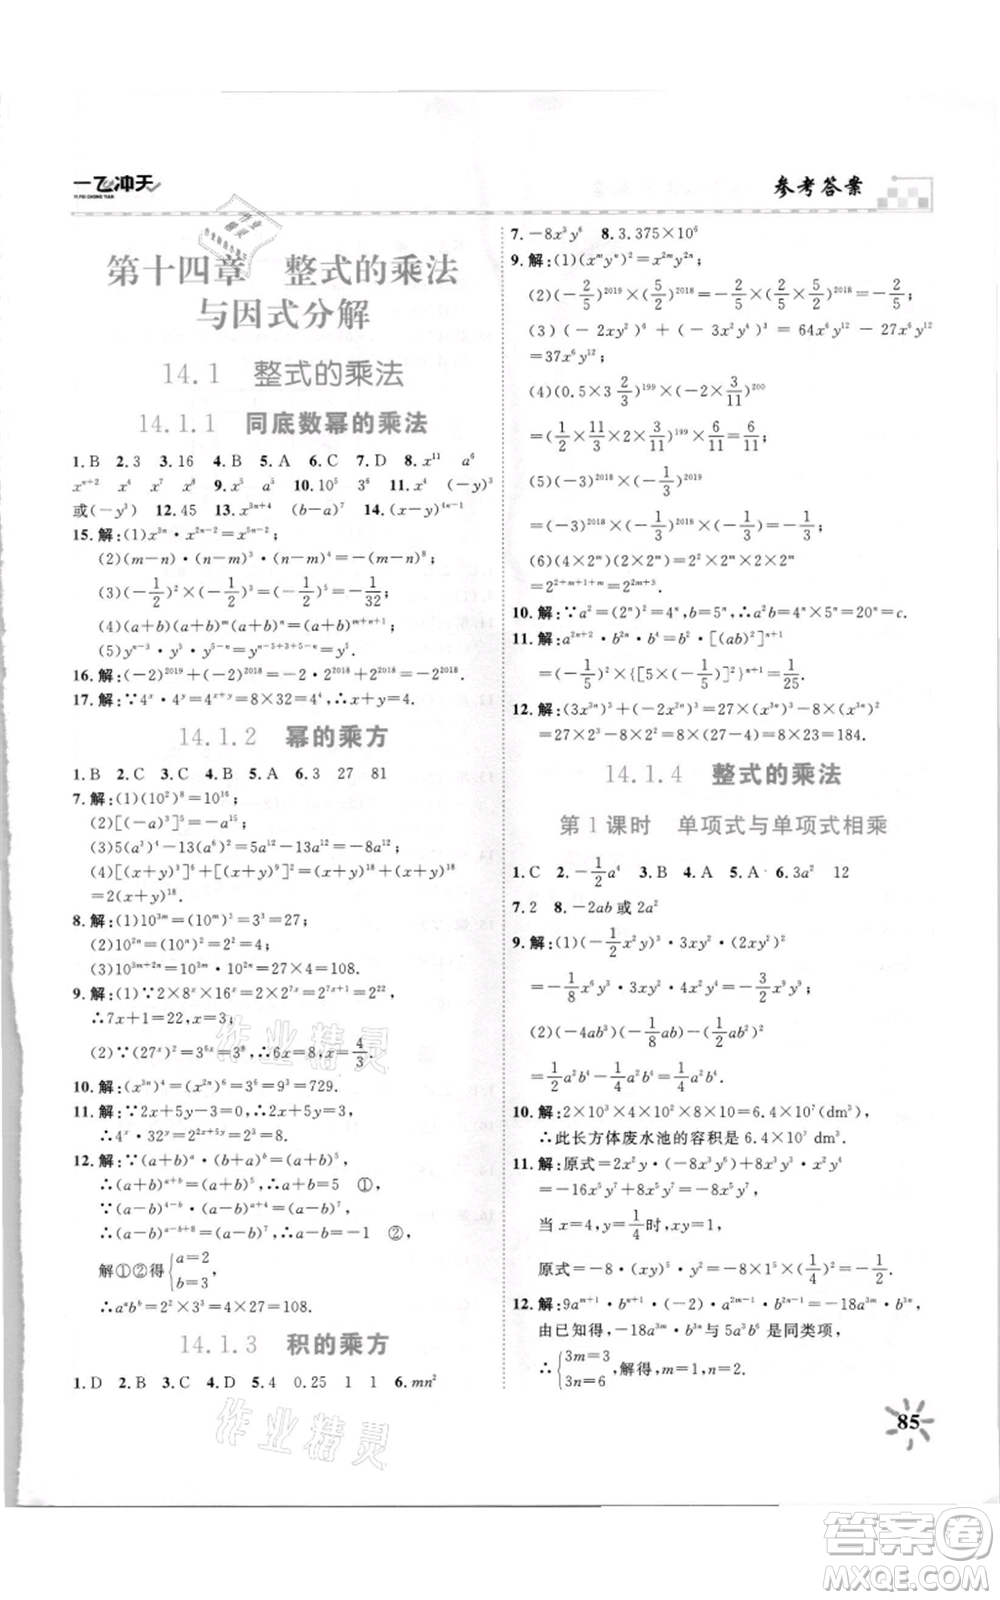 一飞冲天
YI FEI CHONG TIAN
参考答案
第十四章 整式的乘法
与因式分解
14.1 整式的乘法
14.1.1 同底数幂的乘法
1. B 2. 3 3. 16 4. B 5. A 6. C 7. D 8. x¹¹ a⁶
xⁿ⁺² x⁴ x⁷ 9. x⁶ a⁵ 10. 10⁵ 3⁶ 11. x⁴ (-y)³
或(-y³) 12. 45 13. x³ⁿ⁺⁴ (b-a)⁷ 14. (x-y)⁴ⁿ⁻¹
15. 解:(1)x³ⁿ·x²ⁿ⁻²=x⁵ⁿ⁻²;
(2)(m-n)·(m-n)⁵·(m-n)²=(m-n)⁸;
(3)(-1/2)×(-1/2)²×(-1/2)²=(-1/2)⁵=-1/32;
(4)(a+b)(a+b)ᵐ(a+b)ⁿ=(a+b)¹⁺ᵐ⁺ⁿ;
(5)yⁿ⁻³·y³·y⁵⁺ⁿ=yⁿ⁻³⁺³⁺⁵⁺ⁿ=y²ⁿ⁺⁵.
16. 解:(-2)²⁰¹⁹+(-2)²⁰¹⁸=-2·2²⁰¹⁸+2²⁰¹⁸=-2²⁰¹⁸.
17. 解:∵4ˣ·4ʸ=4ˣ⁺ʸ=8×32=4⁴,∴x+y=4.
14.1.2 幂的乘方
1. B 2. C 3. B 4. B 5. A 6. 3 27 81
7. 解:(1)(10²)⁸=10¹⁶;
(2)[(-a)³]⁵=-a¹⁵;
(3)5(a³)⁴-13(a⁶)²=5a¹²-13a¹²=-8a¹²;
(4)[(x+y)³]⁶+[(x+y)⁹]²=(x+y)¹⁸+(x+y)¹⁸
=2(x+y)¹⁸.
8. 解:(1)10³ᵐ=(10ᵐ)³=3³=27;
(2)10²ⁿ=(10ⁿ)²=2²=4;
(3)10³ᵐ⁺²ⁿ=10³ᵐ·10²ⁿ=27×4=108.
9. 解:(1)∵2×8ˣ×16ˣ=2×2³ˣ×2⁴ˣ=2×2⁷ˣ=2⁷ˣ⁺¹=2²²,
∴7x+1=22,∴x=3;
(2)∵(27ˣ)²=3⁶ˣ=3⁸,∴6x=8,∴x=4/3.
10. 解:(x³ⁿ)⁴=(x²ⁿ)⁶=3⁶=9³=729.
11. 解:∵2x+5y-3=0,∴2x+5y=3,
∴4ˣ·32ʸ=2²ˣ·2⁵ʸ=2²ˣ⁺⁵ʸ=2³=8.
12. 解:∵(a+b)ᵃ·(b+a)ᵇ=(a+b)⁵,
∴(a+b)ᵃ⁺ᵇ=(a+b)⁵,∴a+b=5 ①,
∵(a-b)⁴⁻ᵇ·(a-b)ᵃ⁺⁴=(a-b)⁷,
∴(a-b)ᵃ⁻ᵇ⁺⁸=(a-b)⁷,∴a-b=-1 ②,
解①②得{a=2
b=3,
∴aᵃbᵇ=2²×3³=4×27=108.
14.1.3 积的乘方
1. D 2. B 3. D 4. D 5. 4 0.25 1 1 6. mn²
7. -8x³y⁶ 8. 3.375×10⁶
9. 解:(1)(axⁿ)³·(yⁿ)³=a³x³ⁿ·y³ⁿ=a³x³ⁿy³ⁿ;
(2)(-2/5)²⁰¹⁹×(5/2)²⁰¹⁸=(-2/5)×(-2/5×5/2)²⁰¹⁸=-2/5;
(3)(-2xy²)⁶+(-3x²y⁴)³=64x⁶y¹²-27x⁶y¹²
=37x⁶y¹²;
(4)(0.5×3 2/3)¹⁹⁹×(-2×3/11)²⁰⁰
=(1/2×11/3×2×3/11)¹⁹⁹×6/11=6/11;
(5)(-3)²⁰¹⁸×(-1/3)²⁰¹⁹
=(-3)²⁰¹⁸×(-1/3)²⁰¹⁸×(-1/3)=-1/3;
(6)(4×2ⁿ)(2×2ⁿ)=(2²×2ⁿ)(2×2ⁿ)
=2²⁺ⁿ⁺¹⁺ⁿ=2²ⁿ⁺³.
10. 解:∵a²=(2ⁿ)²=4ⁿ,b=5ⁿ,∴a²b=4ⁿ×5ⁿ=20ⁿ=c.
11. 解:a²ⁿ⁺²·bⁿ·bⁿ⁺¹=a·[(ab)²]ⁿ⁺¹
=(-1/5)×{[5×(-1/5)]²}ⁿ⁺¹=1/25.
12. 解:(3x³ⁿ)²+(-2x²ⁿ)³=9(x³ⁿ)²-8(x³ⁿ)²
=9×(2³)²-8×7³=27×8-8×4=8×23=184.
14.1.4 整式的乘法
第1课时 单项式与单项式相乘
1. C 2. -1/2a⁴ 3. B 4. A 5. A 6. 3a² 12
7. 2 8. -2ab或2a²
9. 解:(1)(-1/2x²y)³·3xy²·(2xy²)²
=-1/8x⁶y³·3xy²·4x²y⁴=-3/2x⁹y⁹;
(2)(-4ab³)(-1/8ab)-(1/2ab²)²
=1/2a²b⁴-1/4a²b⁴=1/4a²b⁴.
10. 解:2×10³×4×10²×8×10=6.4×10⁷(dm³),
∴此长方体废水池的容积是6.4×10⁷ dm³.
11. 解:原式=2x²y·(-8x³y⁶)+8x³·x²y⁷
=-16x⁵y⁷+8x⁵y⁷=-8x⁵y⁷,
当x=4,y=1/4时,xy=1,
原式=-8·(xy)⁵·y²=-8×1⁵×(1/4)²=-1/2.
12. 解:9aᵐ⁺¹·bⁿ⁺¹·(-2)·a²ᵐ⁻¹·b²ⁿ⁻¹=-18a³ᵐ·b³ⁿ,
由已知得,-18a³ᵐ·b³ⁿ与5a³b⁶是同类项,
∴{3m=3
3n=6,解得,m=1,n=2.
85
作业精灵
作业精灵
答案圈
MXQE.COM